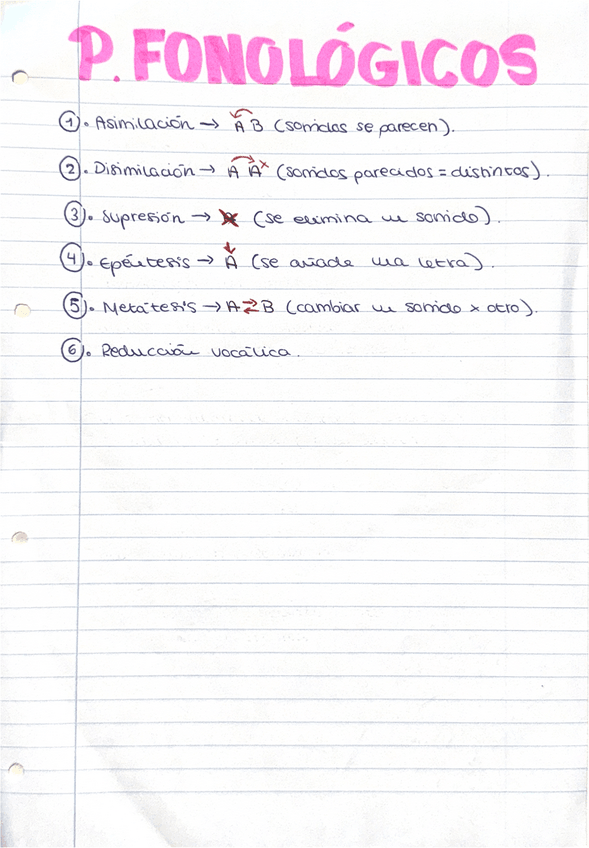 P. FONOLÓGICOS
1. Asimilación → A B (sonidos se parecen).
2. Disimilación → A A x (sonidos parecidos = distintos).
3. Supresión → A (se elimina un sonido).
4. Epéntesis → A (se añade una letra).
5. Metátesis → A ⇄ B (cambiar un sonido x otro).
6. Reducción vocálica.